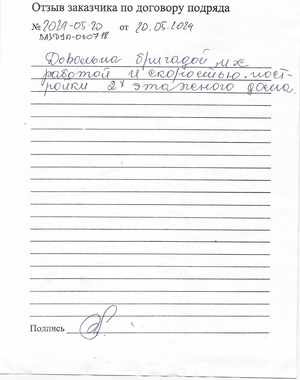 Отзыв заказчика по договору подряда
№ 2024-05-20 от 20.05.2024
Довольна бригадой, их
работой и скоростью пост-
ройки 2х этажного дома.
Подпись